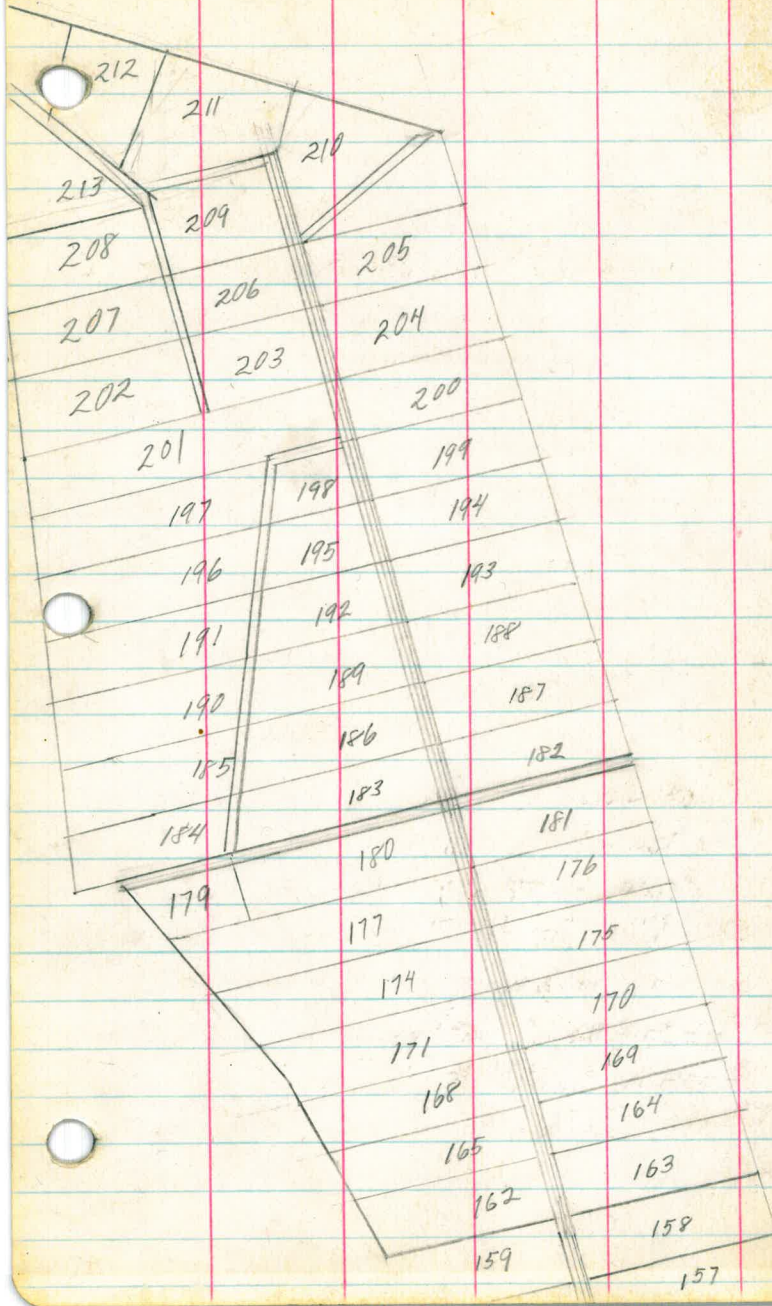 212
211
210
213
209
208
205
206
207
204
203
202
200
201
199
198
197
194
195
196
193
192
191
188
189
190
187
186
185
182
183
184
181
180
176
179
177
175
174
170
171
169
168
164
165
163
162
158
159
157